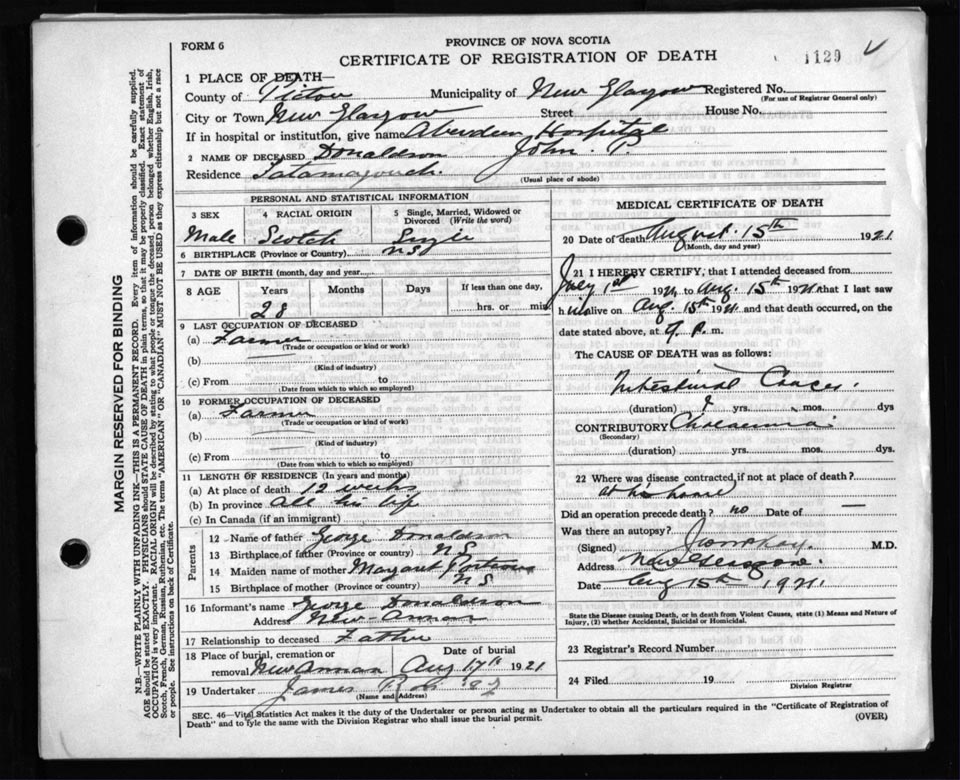 FORM 6
PROVINCE OF NOVA SCOTIA
CERTIFICATE OF REGISTRATION OF DEATH
1129
1 PLACE OF DEATH—
County of Pictou Municipality of New Glasgow Registered No.
(For use of Registrar General only)
City or Town New Glasgow Street House No.
If in hospital or institution, give name Aberdeen Hospital
2 NAME OF DECEASED Donaldson John. P
Residence Tatamagouch. (Usual place of abode)
PERSONAL AND STATISTICAL INFORMATION
3 SEX 4 RACIAL ORIGIN 5 Single, Married, Widowed or Divorced (Write the word)
Male Scotch
6 BIRTHPLACE (Province or Country) NS
7 DATE OF BIRTH (month, day and year)
8 AGE Years Months Days If less than one day,
28 hrs. or min
9 LAST OCCUPATION OF DECEASED
(a) Farmer
(Trade or occupation or kind of work)
(b)
(Kind of industry)
(c) From to
(Date from which to which so employed)
10 FORMER OCCUPATION OF DECEASED
(a) Farmer
(Trade or occupation or kind of work)
(b)
(Kind of industry)
(c) From to
(Date from which to which so employed)
11 LENGTH OF RESIDENCE (In years and months)
(a) At place of death 12 weeks
(b) In province all his life
(c) In Canada (if an immigrant)
Parents
12 Name of father George Donaldson
13 Birthplace of father (Province or country) NS
14 Maiden name of mother Margaret
15 Birthplace of mother (Province or country) NS
16 Informant's name George Donaldson
Address New Annan
17 Relationship to deceased Father
18 Place of burial, cremation or removal New Annan Date of burial Aug 17th 1921
19 Undertaker James
(Name and Address)
MEDICAL CERTIFICATE OF DEATH
20 Date of death August 15th 1921
(Month, day and year)
21 I HEREBY CERTIFY, that I attended deceased from
July 1st 1921 to Aug. 15th 1921 that I last saw
h alive on Aug 15th 1921 and that death occurred, on the
date stated above, at P. m.
The CAUSE OF DEATH was as follows:
Intestinal Cancer.
(duration) yrs. mos. dys
CONTRIBUTORY
(Secondary)
(duration) yrs. mos. dys.
22 Where was disease contracted, if not at place of death?
at his home
Did an operation precede death? no Date of —
Was there an autopsy?
(Signed) M.D.
Address New Glasgow.
Date Aug 15th 1921.
State the Disease causing Death, or in death from Violent Causes, state (1) Means and Nature of
Injury, (2) whether Accidental, Suicidal or Homicidal.
23 Registrar's Record Number
24 Filed 19
Division Registrar
SEC. 46—Vital Statistics Act makes it the duty of the Undertaker or person acting as Undertaker to obtain all the particulars required in the "Certificate of Registration of
Death" and to fyle the same with the Division Registrar who shall issue the burial permit.
(OVER)
MARGIN RESERVED FOR BINDING
N.B.—WRITE PLAINLY WITH UNFADING INK—THIS IS A PERMANENT RECORD. Every item of information should be carefully supplied.
AGE should be stated EXACTLY. PHYSICIANS should STATE CAUSE OF DEATH in plain terms, so that it may be properly classified. Exact statement of
OCCUPATION is very important. RACIAL ORIGIN will be described by stating to what people or tongue the deceased person belonged whether English, Irish,
Scotch, French, German, Russian, Ruthenian, etc. The terms "AMERICAN" OR "CANADIAN" MUST NOT BE USED as they express citizenship but not a race
or people. See instructions on back of Certificate.